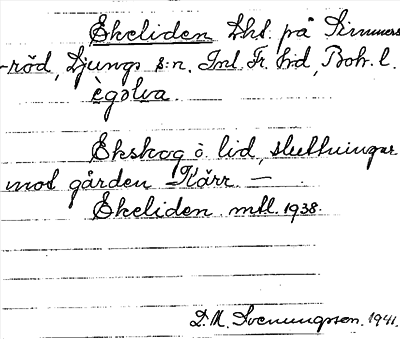 Ekeliden Lht. på Simmers
-röd, Ljungs s:n. Inl. Fr. hd, Boh. l.
ègølva.
Ekskog o. lid, sluttningar
mot gården Kärr —
Ekeliden. mtl. 1938.
D. M. Svenungsson. 1941.